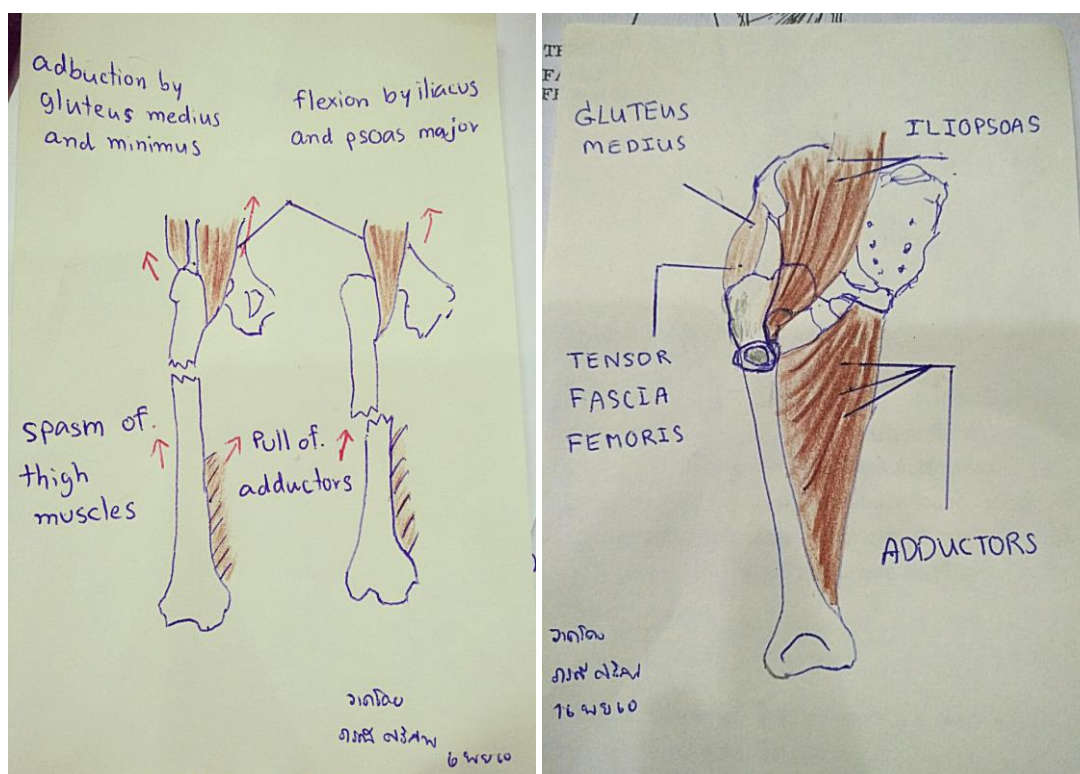 adbuction by
gluteus medius
and minimus
flexion by iliacus
and psoas major
spasm of.
thigh
muscles
Pull of.
adductors
วาดโดย
TE
FA
FE
GLUTEUS
MEDIUS
ILIOPSOAS
TENSOR
FASCIA
FEMORIS
ADDUCTORS
วาดโดย
16 พย 60